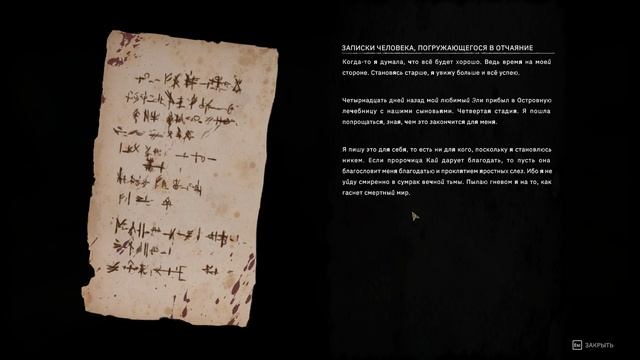 ЗАПИСКИ ЧЕЛОВЕКА, ПОГРУЖАЮЩЕГОСЯ В ОТЧАЯНИЕ
Когда-то я думала, что всё будет хорошо. Ведь время на моей
стороне. Становясь старше, я увижу больше и всё успею.
Четырнадцать дней назад мой любимый Эли прибыл в Островную
лечебницу с нашими сыновьями. Четвертая стадия. Я пошла
попрощаться, зная, чем это закончится для меня.
Я пишу это для себя, то есть ни для кого, поскольку я становлюсь
никем. Если пророчица Кай дарует благодать, то пусть она
благословит меня благодатью и проклятием яростных слез. Ибо я не
уйду смиренно в сумрак вечной тьмы. Пылаю гневом я на то, как
гаснет смертный мир.
ЗАКРЫТЬ